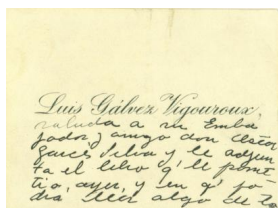 Luis Gálvez Vigouroux,
saluda a su Emba
jador y amigo don Cesar
Garcés Silva y le adjun
ta el libro q' le prome
tio, ayer, y en q' po-
drá leer algo de to